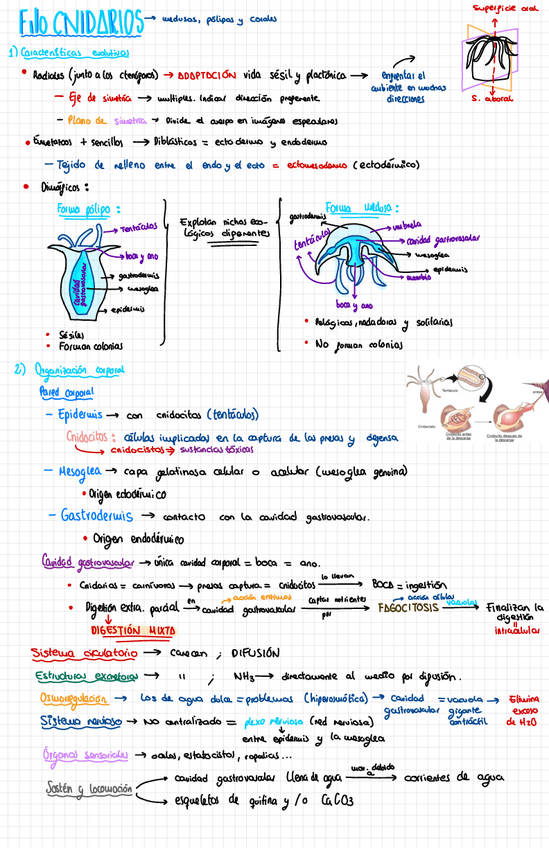 Filo CNIDARIOS → medusas, pólipos y corales
Superficie oral
S. aboral
1) Características evolutivas
• Radiales (junto a los ctenóforos) → ADAPTACIÓN vida sésil y planctónica → enfrentar el ambiente en muchas direcciones
– Eje de simetría → multiples. Indica dirección preferente
– Plano de simetría → Divide el cuerpo en imágenes especulares
+ sencillos → Diblásticos = ectodermo y endodermo
– Tejido de relleno entre el endo y el ecto = ectomesodermo (ectodérmico)
• Dimórficos:
Forma pólipo:
Tentáculos
boca y ano
gastrodermis
mesoglea
epidermis
cavidad gastrovascular
• Sésiles
• Forman colonias
Explotan nichos eco-
lógicos diferentes
Forma medusa:
gastrodermis
umbrela
tentáculos
cavidad gastrovascular
mesoglea
epidermis
manubrio
boca y ano
• Pelágicos, nadadoras y solitarias
• No forman colonias
2) Organización corporal
Pared corporal
– Epidermis → con cnidocitos (tentáculos)
Cnidocitos: células implicadas en la captura de las presas y defensa
cnidocistos → sustancias tóxicas
– Mesoglea → capa gelatinosa celular o acelular (mesoglea genuina)
• Origen ectodérmico
– Gastrodermis → contacto con la cavidad gastrovascular.
• Origen endodérmico
Tentáculo
Cnidocito
Cnidocito antes de la descarga
Cnidocito después de la descarga
presa
Cavidad gastrovascular → única cavidad corporal = boca = ano.
• Cnidarios = carnívoros → presas captura = cnidocitos lo llevan → BOCA = ingestión
• Digestión extra. parcial en → cavidad gastrovascular acción enzimas captar nutrientes por → FAGOCITOSIS acción células vacuolas → Finalizan la digestión = intracelular
DIGESTIÓN MIXTA
Sistema circulatorio → carecen ; DIFUSIÓN
Estructuras excretoras → " ; NH3 → directamente al medio por difusión.
Osmoregulación → los de agua dulce = problemas (hiperosmótica) → cavidad gastrovascular = vacuola gigante contráctil → Elimina exceso de H2O
Sistema nervioso → No centralizado = plexo nervioso (red nerviosa)
entre epidermis y la mesoglea
Órganos sensoriales → ocelos, estatocistos, ropalias...
Sostén y locomoción → cavidad gastrovascular llena de agua mov. debido a → corrientes de agua
→ esqueletos de quitina y/o CaCO3